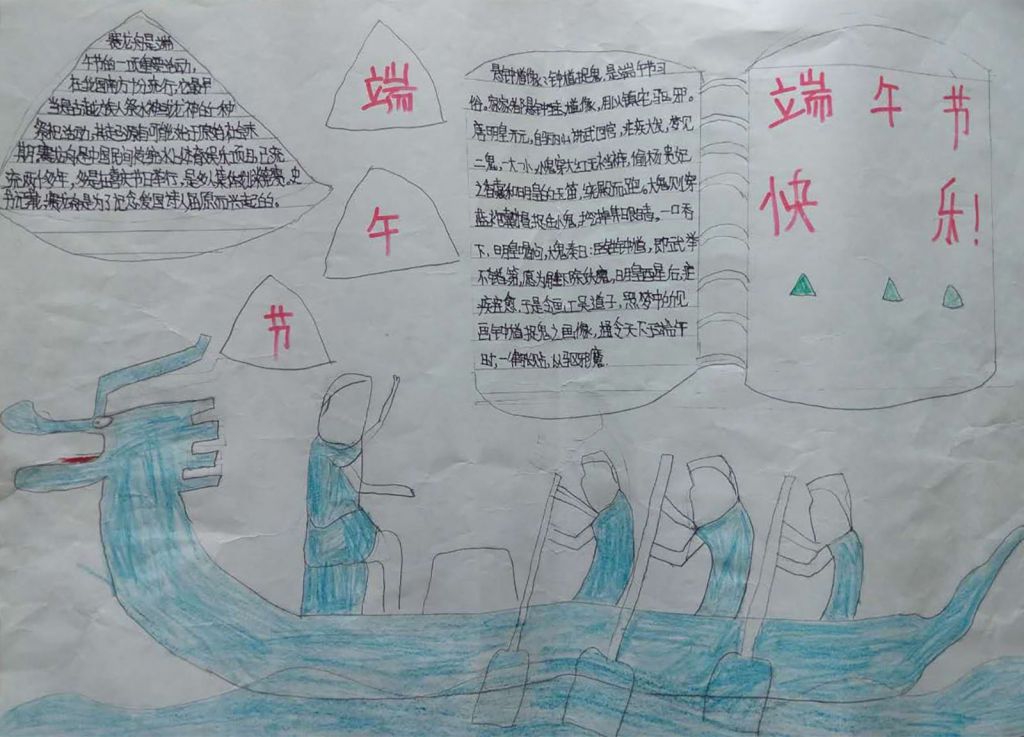 赛龙舟是端
午节的一项重要活动，
在我国南方十分流行，它最早
当是古越族人祭水神或龙神的一种
祭祀活动，其起源有可能始于原始社会末
期。赛龙舟是中国民间传统水上体育娱乐项目，已流
传两千多年，多是在喜庆节日举行，是多人集体划桨竞赛。史
书记载，赛龙舟是为了纪念爱国诗人屈原而兴起的。
端
午
节
悬钟馗像：钟馗捉鬼，是端午节习
俗。家家都悬钟馗像，用以镇宅驱邪。
唐明皇开元，自骊山讲武回宫，疟疾大发，梦见
二鬼，一大一小，小鬼穿大红无裆裤，偷杨贵妃
之香囊和明皇的玉笛，绕殿而跑。大鬼则穿
蓝袍戴帽，捉住小鬼，挖掉其眼睛，一口吞
下。明皇喝问，大鬼奏曰：臣姓钟馗，即武举
不第，愿为陛下除妖魔，明皇醒后，疟
疾痊愈，于是令画工吴道子，照梦中所见
画钟馗捉鬼之画像，通令天下于端午
时，一律张贴，以驱邪魔。
端 午 节
快 乐！